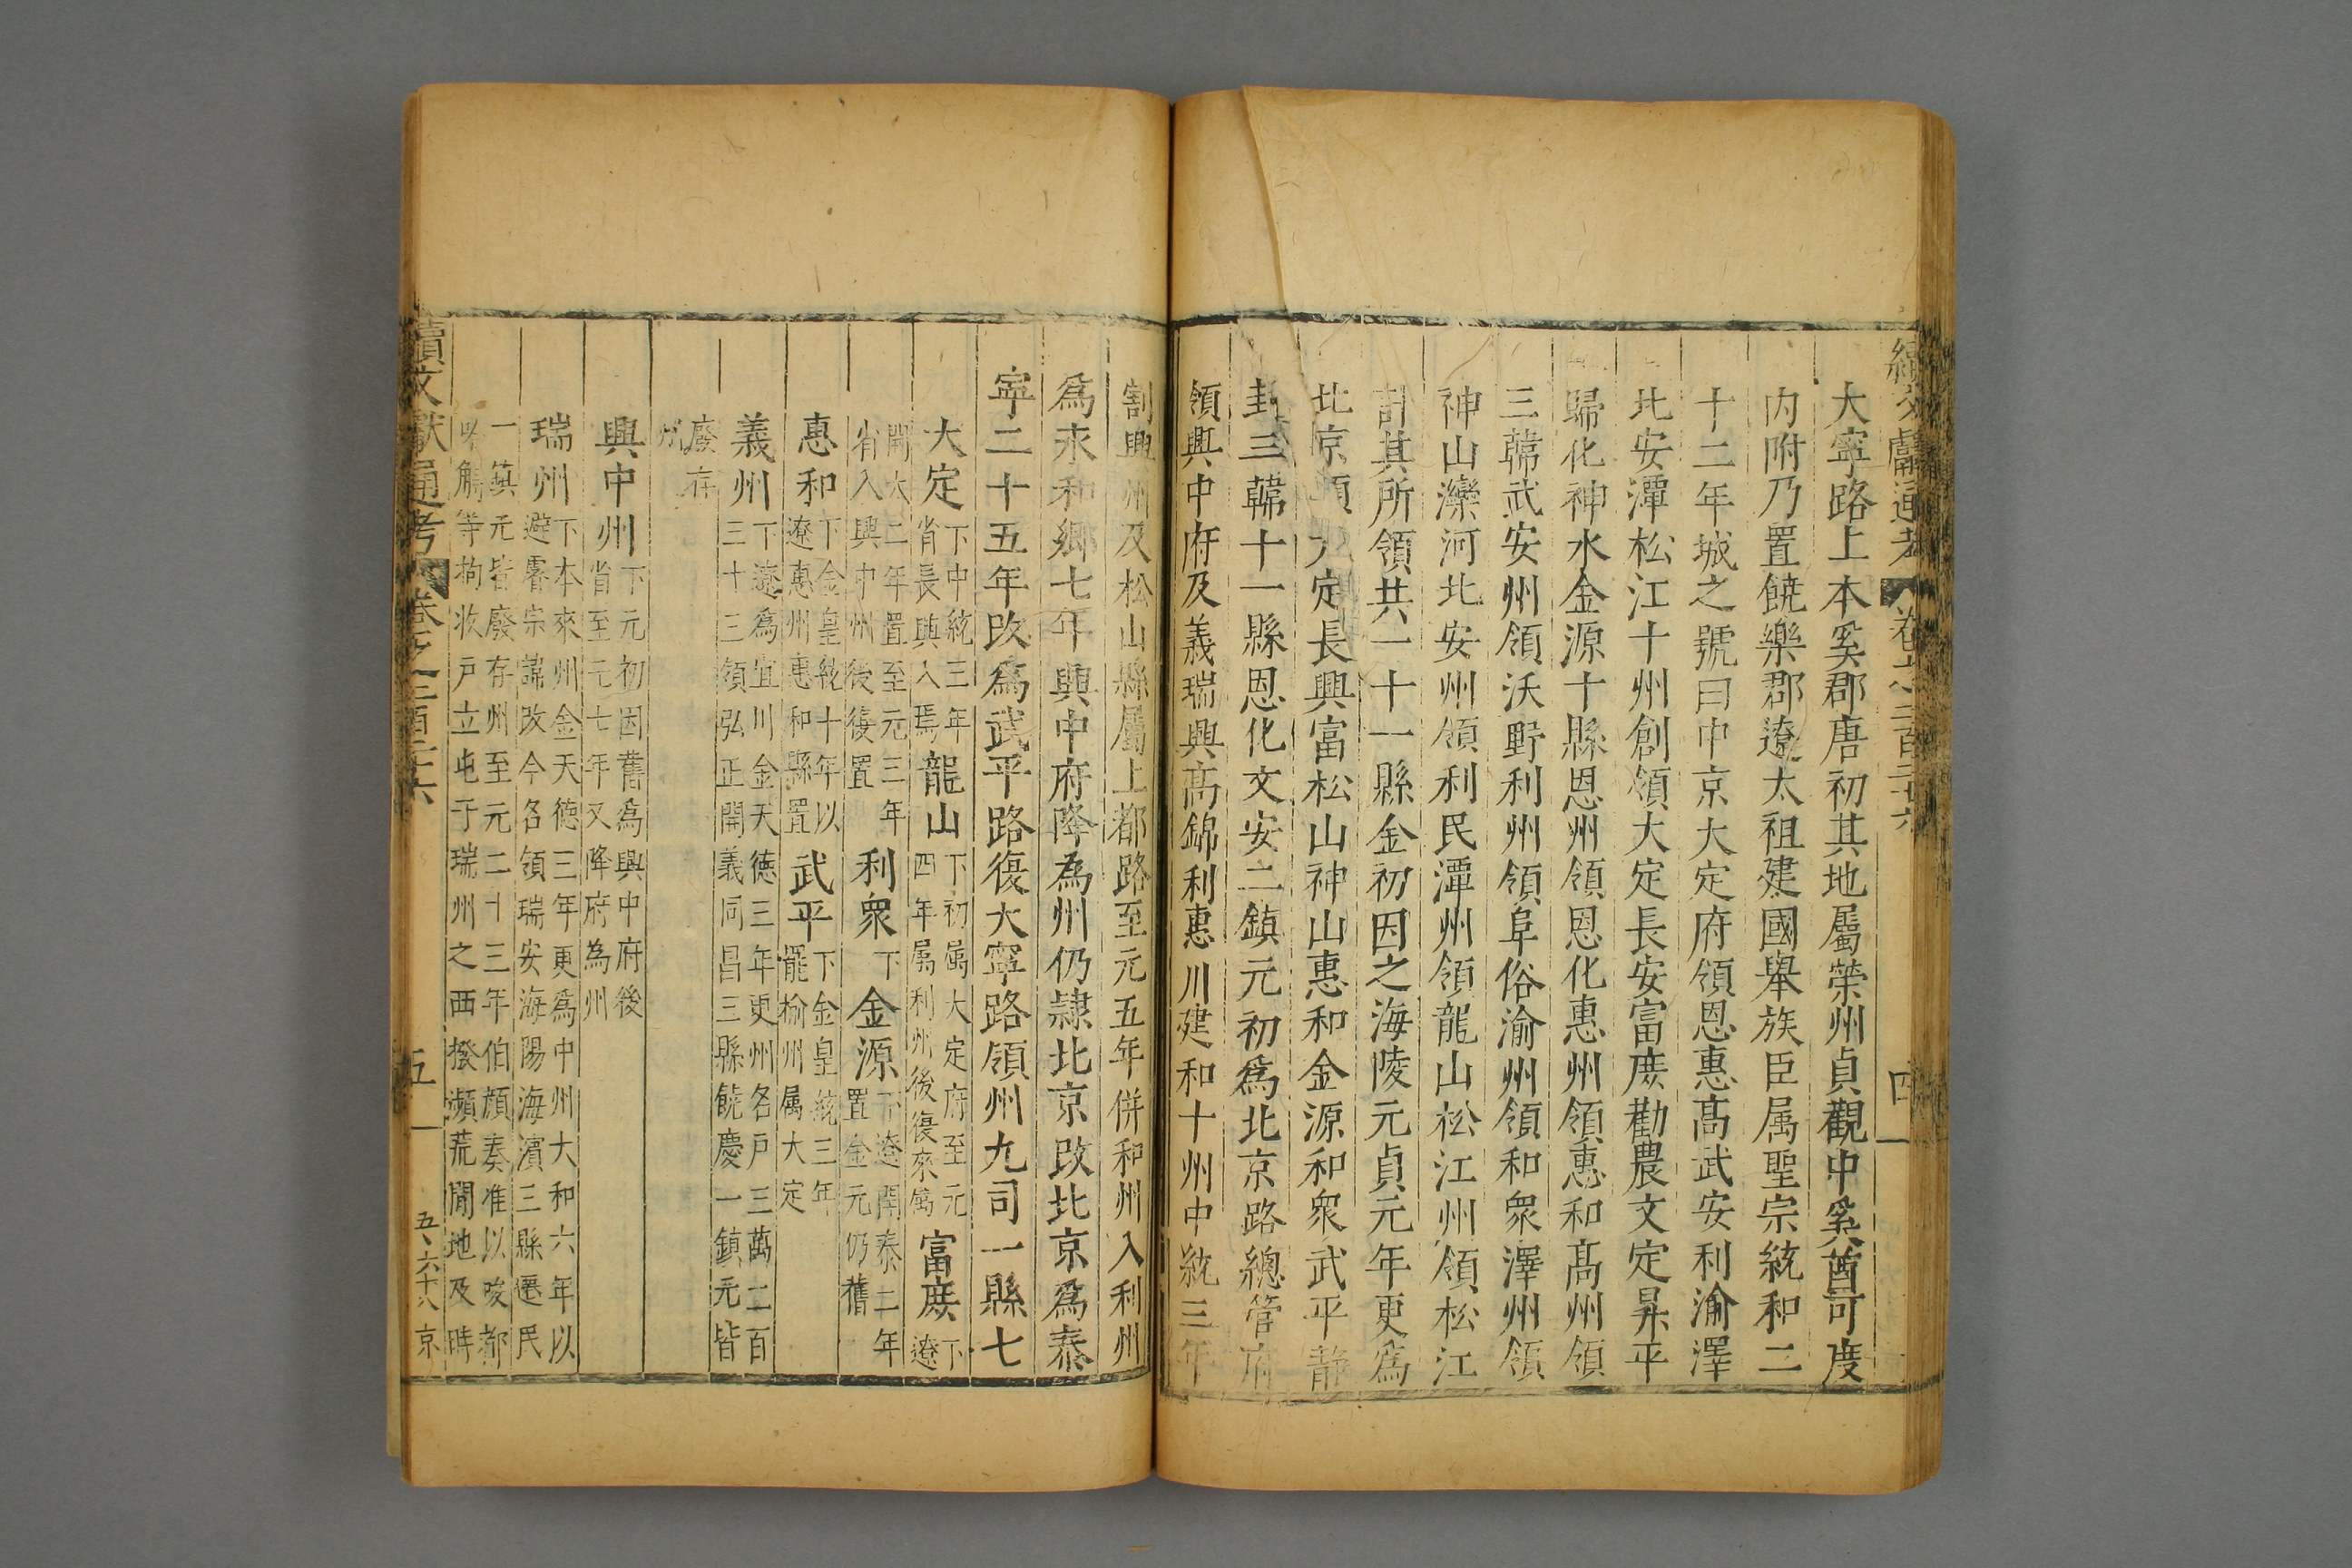 續文獻通考 卷之二百二十六 四
大寧路上本奚郡唐初其地屬榮州貞觀中奚酋可度
内附乃置饒樂郡遼太祖建國舉族臣属聖宗統和二
十二年城之號曰中京大定府領恩惠高武安利渝澤
北安潭松江十州創領大定長安富庻勸農文定昇平
歸化神水金源十縣恩州領恩化惠州領惠和高州領
三韓武安州領沃野利州領阜俗渝州領和衆澤州領
神山灤河北安州領利民潭州領龍山松江州領松江
計其所領共一十一縣金初因之海陵元貞元年更爲
北京領大定長興富松山神山惠和金源和衆武平静
封三韓十一縣恩化文安二鎮元初爲北京路總管府
領興中府及義瑞興高錦利惠川建和十州中統三年
割興州及松山縣屬上都路至元五年併和州入利州
爲永和鄉七年興中府降為州仍隷北京改北京爲泰
寧二十五年改爲武平路復大寧路領州九司一縣七
大定 下中統三年省長興入焉 龍山 下初属大定府至元四年属利州後復來属 富庻 下遼
開大二年置至元三年省入興中州後復置 利衆 下 金源 下遼開泰二年置金元仍舊
惠和 下金皇統十年以遼惠州惠和縣置 武平 下金皇統三年罷榆州属大定
義州 下遼為宜川金天德三年更州名戸三萬二百三十三領弘正開義同昌三縣饒慶一鎮元皆
廢存州
興中州 下元初因舊為興中府後省至元七年又降府為州
瑞州 下本來州金天德三年更爲中州大和六年以避睿宗諱改今名領瑞安海陽海濱三縣遷民
一鎮元皆廢存州至元二十三年伯顔奏准以唆都
哈觴等拘收戸立屯于瑞州之西撥瀕荒閒地及時
續文獻通考 卷之二百二十六 五 五、六十八 京